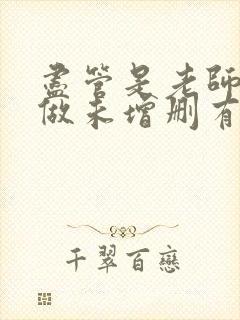 盡管是老師
做未增刪有
千翠百戀